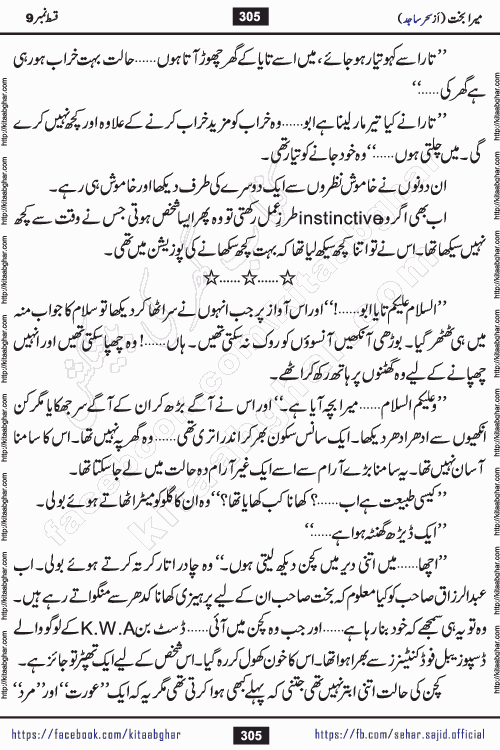 میرا بخت (از سحر ساجد) 305 قسط نمبر 9
’’تارا سے کہو تیار ہو جائے، میں اسے تایا کے گھر چھوڑ آتا ہوں......حالت بہت خراب ہو رہی
ہے گھر کی......‘‘
’’تارا نے کیا تیر مار لینا ہے ابو......وہ خراب کو مزید خراب کرنے کے علاوہ اور کچھ نہیں کرے
گی۔ میں چلتی ہوں......‘‘ وہ خود جانے کو تیار تھی۔
ان دونوں نے خاموش نظروں سے ایک دوسرے کی طرف دیکھا اور خاموش ہی رہے۔
اب بھی اگر وہ instinctive طرز عمل رکھتی تو وہ پھر ایسا شخص ہوتی جس نے وقت سے کچھ
نہیں سیکھا تھا۔ اس نے تو اتنا کچھ سیکھ لیا تھا کہ بہت کچھ سکھانے کی پوزیشن میں تھی۔
☆......☆......☆
’’السلام علیکم تایا ابو......!‘‘ اور اس آواز پر جب انہوں نے سر اٹھا کر دیکھا تو سلام کا جواب منہ
میں ہی ٹھٹھر گیا۔ بوڑھی آنکھیں آنسوؤں کو روک نہ سکتی تھیں۔ ہاں......! وہ چھپا سکتی تھیں اور انہیں
چھپانے کے لیے وہ گھٹنوں پر ہاتھ رکھ کر اٹھے۔
’’وعلیکم السلام......میرا بچہ آیا ہے۔‘‘ اور اس نے آگے بڑھ کر ان کے آگے سر جھکایا مگر کن
انکھیوں سے ادھر ادھر دیکھا۔ ایک سانس سکون بھر کر اندر اتری تھی......وہ گھر پہ نہیں تھا۔ اس کا سامنا
آسان نہیں تھا۔ یہ سامنا بڑے آرام سے اسے ایک غیر آرام دہ حالت میں لے جا سکتا تھا۔
’’کیسی طبیعت ہے اب......؟ کھانا کب کھایا تھا؟‘‘ وہ ان کا گلوکومیٹر اٹھاتے ہوئے بولی۔
’’ایک ڈیڑھ گھنٹہ ہوا ہے......‘‘
’’اچھا......میں اتنی دیر میں کچن دیکھ لیتی ہوں۔‘‘ وہ چادر اتار کر تہ کرتے ہوئے بولی۔ اب
عبدالرزاق صاحب کو کیا معلوم کہ بخت صاحب ان کے لیے پرہیزی کھانا کدھر سے منگواتے رہے ہیں۔
وہ تو یہ ہی سمجھے کہ خود بنا رہا ہے......اور جب وہ کچن میں آئی......ڈسٹ بن K.W.A کے لوگو والے
ڈسپوزیبل فوڈ کنٹینرز سے بھرا ہوا تھا۔ اس کا خون کھول کر رہ گیا۔ اس شخص کے لیے ایک تھپڑ تو جائز ہے۔
کچن کی حالت اتنی ابتر نہیں تھی جتنی کہ پہلے بھی ہوا کرتی تھی مگر یہ کہ ایک ’’عورت‘‘ اور ’’مرد‘‘
https://facebook.com/kitaabghar 305 https://fb.com/sehar.sajid.official
http://kitaabghar.com http://kitaabghar.com http://kitaabghar.com http://kitaabghar.com http://kitaabghar.com http://kitaabghar.com http://kitaabghar.com http://kitaabghar.com